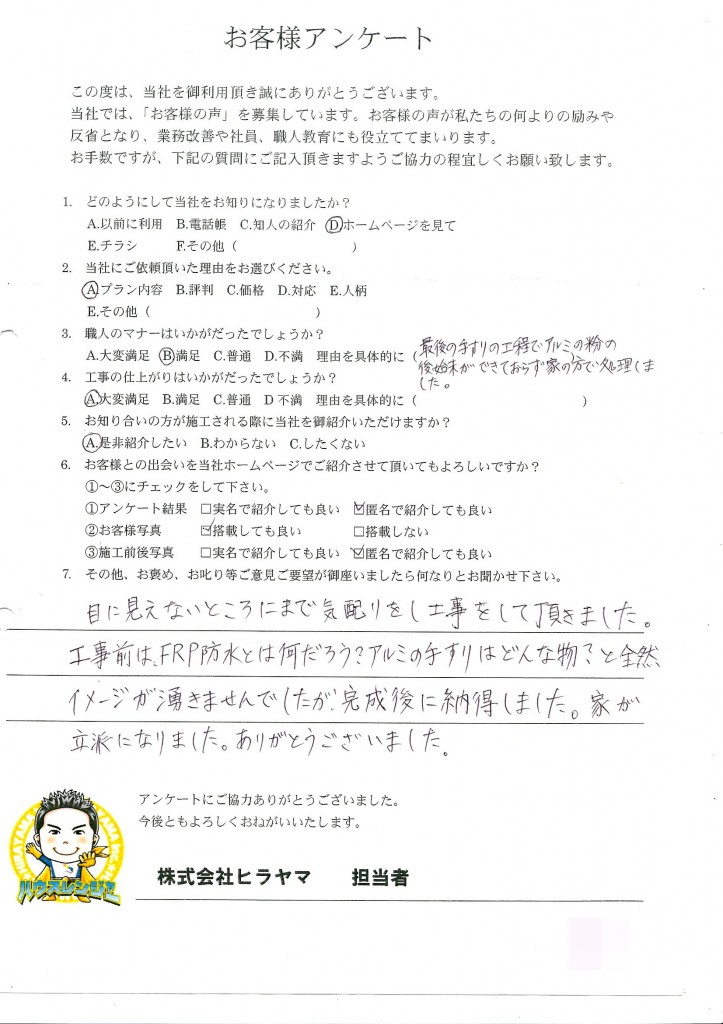 お客様アンケート
この度は、当社を御利用頂き誠にありがとうございます。
当社では、「お客様の声」を募集しています。お客様の声が私たちの何よりの励みや
反省となり、業務改善や社員、職人教育にも役立ててまいります。
お手数ですが、下記の質問にご記入頂きますようご協力の程宜しくお願い致します。
1. どのようにして当社をお知りになりましたか？
A.以前に利用 B.電話帳 C.知人の紹介 D.ホームページを見て
E.チラシ F.その他（ ）
2. 当社にご依頼頂いた理由をお選びください。
A.プラン内容 B.評判 C.価格 D.対応 E.人柄
E.その他（ ）
3. 職人のマナーはいかがだったでしょうか？
A.大変満足 B.満足 C.普通 D.不満 理由を具体的に（ ）
最後の手すりの工程でアルミの粉の
後始末ができておらず家の方で処理しま
した。
4. 工事の仕上がりはいかがだったでしょうか？
A.大変満足 B.満足 C.普通 D 不満 理由を具体的に（ ）
5. お知り合いの方が施工される際に当社を御紹介いただけますか？
A.是非紹介したい B.わからない C.したくない
6. お客様との出会いを当社ホームページでご紹介させて頂いてもよろしいですか？
①～③にチェックをして下さい。
①アンケート結果 □実名で紹介しても良い ☑匿名で紹介しても良い
②お客様写真 ☑搭載しても良い □搭載しない
③施工前後写真 □実名で紹介しても良い ☑匿名で紹介しても良い
7. その他、お褒め、お叱り等ご意見ご要望が御座いましたら何なりとお聞かせ下さい。
目に見えないところにまで気配りをし工事をして頂きました。
工事前は、FRP防水とは何だろう？アルミの手すりはどんな物？と全然
イメージが湧きませんでしたが、完成後に納得しました。家が
立派になりました。ありがとうございました。
アンケートにご協力ありがとうございました。
今後ともよろしくおねがいいたします。
ハウスレンジャー
株式会社ヒラヤマ 担当者